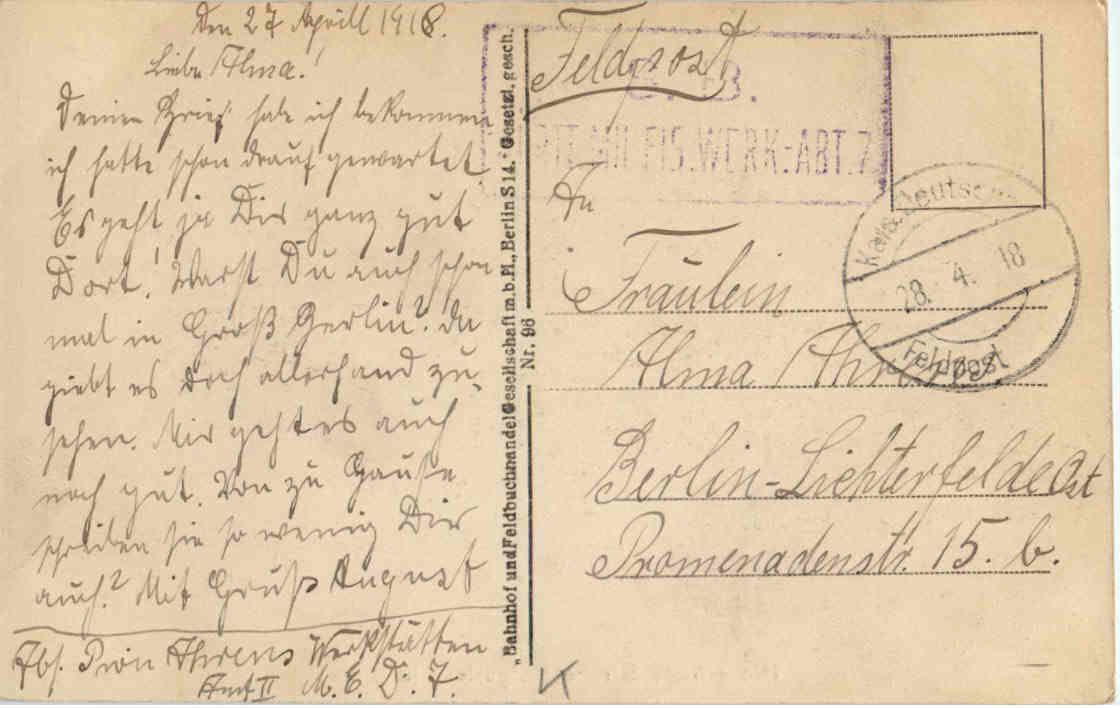 Den 27 Aprill 1918.
Liebe Alma!
Deinen Brief habe ich bekommen
ich hatte schon drauf gewartet
Es geht ja Dir ganz gut
Dort! Warst Du auch schon
mal in Groß Berlin? da
giebt es doch allerhand zu
sehen. Mir geht es auch
noch gut. Von zu Hause
schreiben sie so wenig Dir
auch? Mit Gruß August
Abs. Pion Ahrens Werkstätten
Amt II M. E. D. 7.
"Bahnhof und Feldbuchhandel Gesellschaft m.b.H., Berlin S 14." Gesetzl. gesch.
Nr. 96
Feldpost
S. B.
MIL EIS. WERK.-ABT. 7
An
Fräulein
Alma Ahrens
Berlin-Lichterfelde Ost
Promenadenstr. 15. b.
Kais. Deutsche
28. 4. 18
Feldpost
K